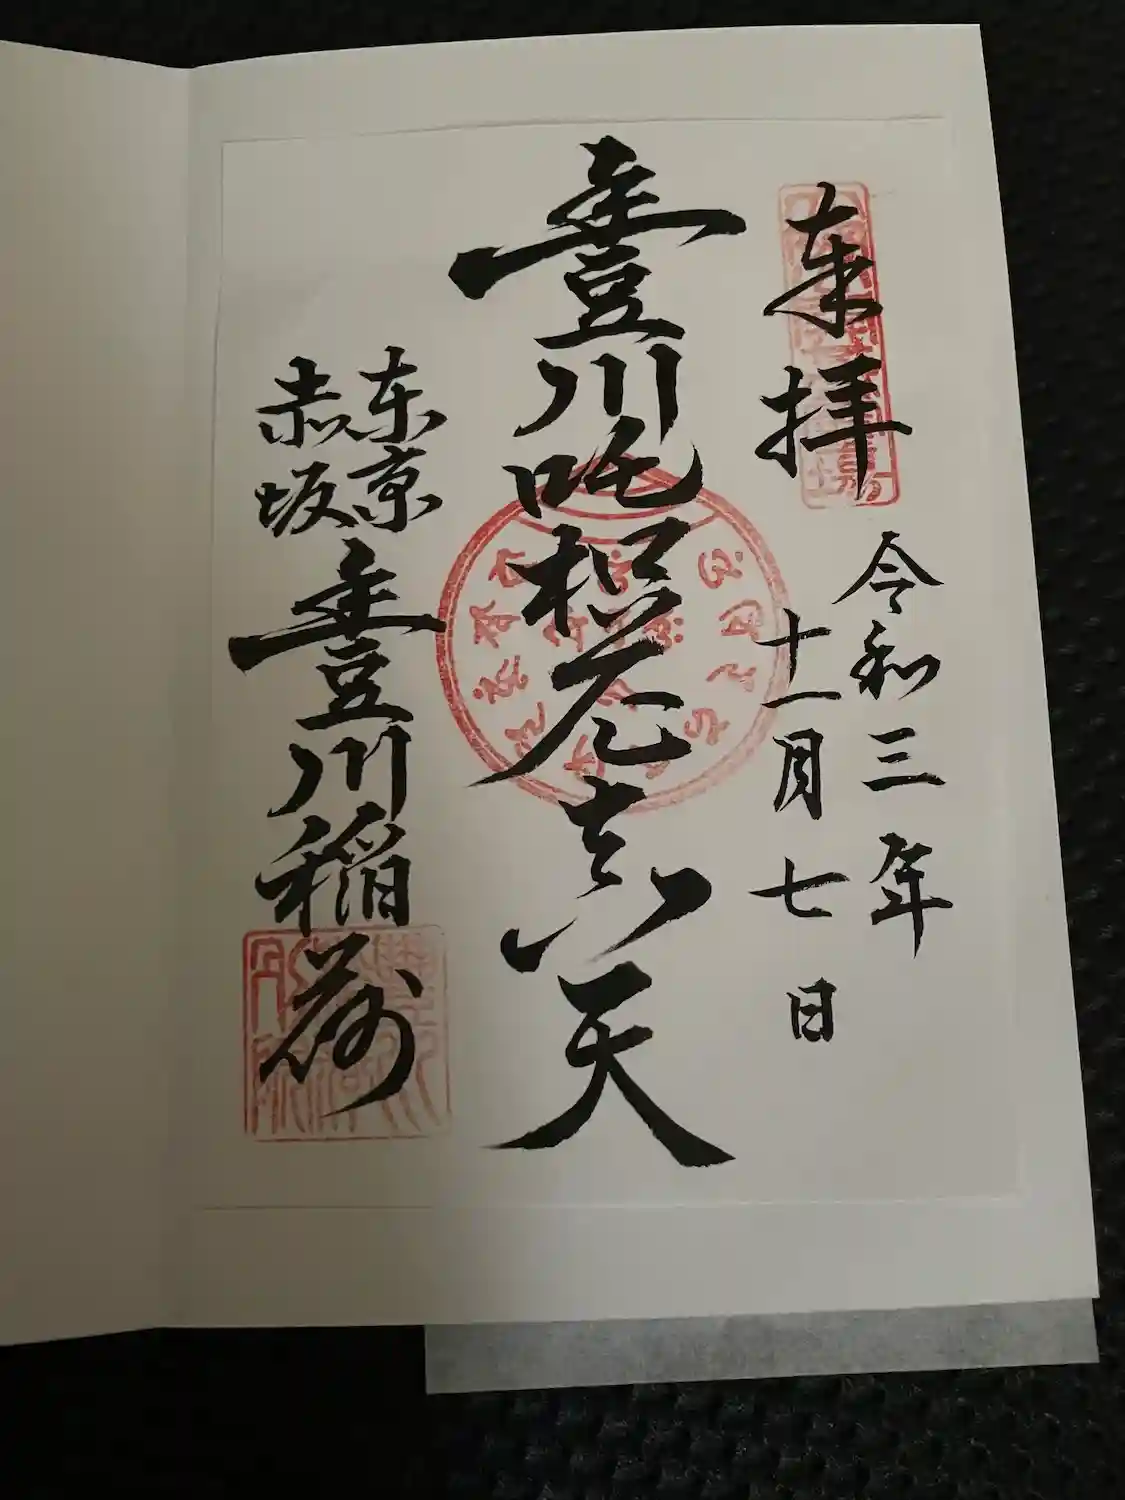 来拝
令和三年
十一月七日
豊川吒枳尼真天
東京
赤坂
豊川稲荷